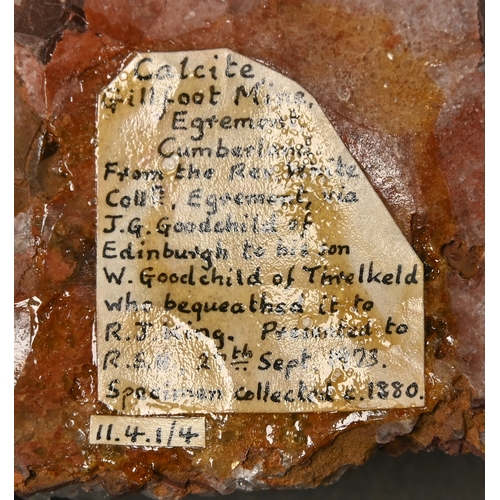 Calcite
Gillfoot Mine,
Egremont
Cumberland
From the Rev. White
Collⁿ, Egremont, via
J.G. Goodchild of
Edinburgh to his son
W. Goodchild of Threlkeld
who bequeathed it to
R.J. King. Presented to
R.S.   th Sept. 1973.
Specimen collected c.1880.
11.4.1/4